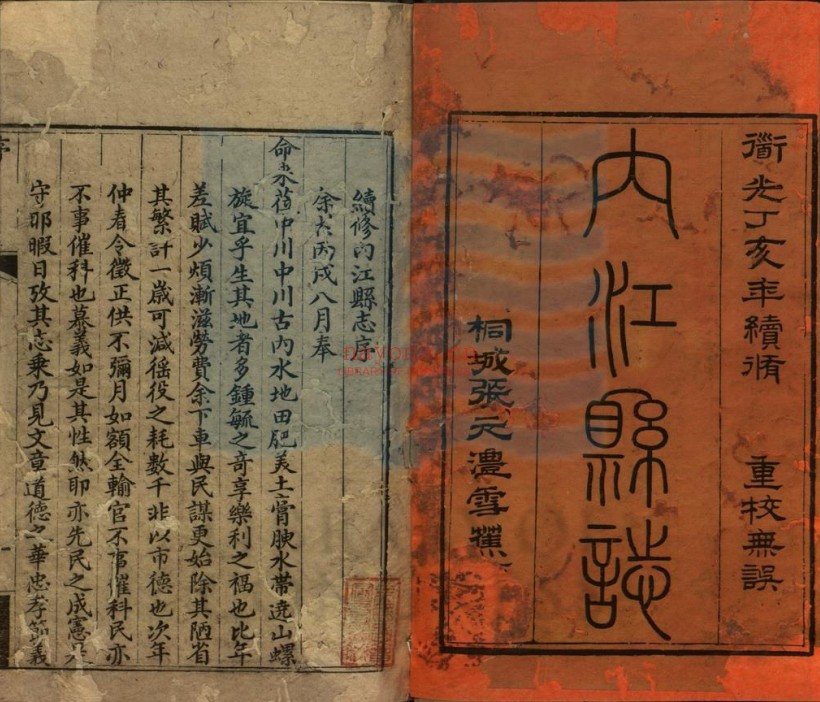 道光丁亥年續脩 重校無誤
內江縣誌
桐城張元澧雪蕉
續修內江縣志序
余六丙戌八月奉
命來蒞中川中川古內水地田肥美土膏腴水帶遶山螺
旋宜乎生其地者多鍾毓之奇享樂利之福也比年
差賦少煩漸滋勞費余下車與民謀更始除其陋省
其繁計一歲可減徭役之耗數千非以市德也次年
仲春令徵正供不彌月如額全輸官不事催科民亦
不事催科也慕義如是其性然耶亦先民之成憲
守耶暇日攷其志乘乃見文章道德之華忠孝節義
序